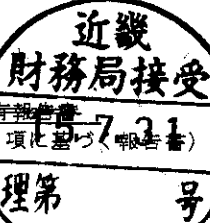 近畿
財務局接受
有報告書
15.7.31
項に基づく報告書)
理第 号